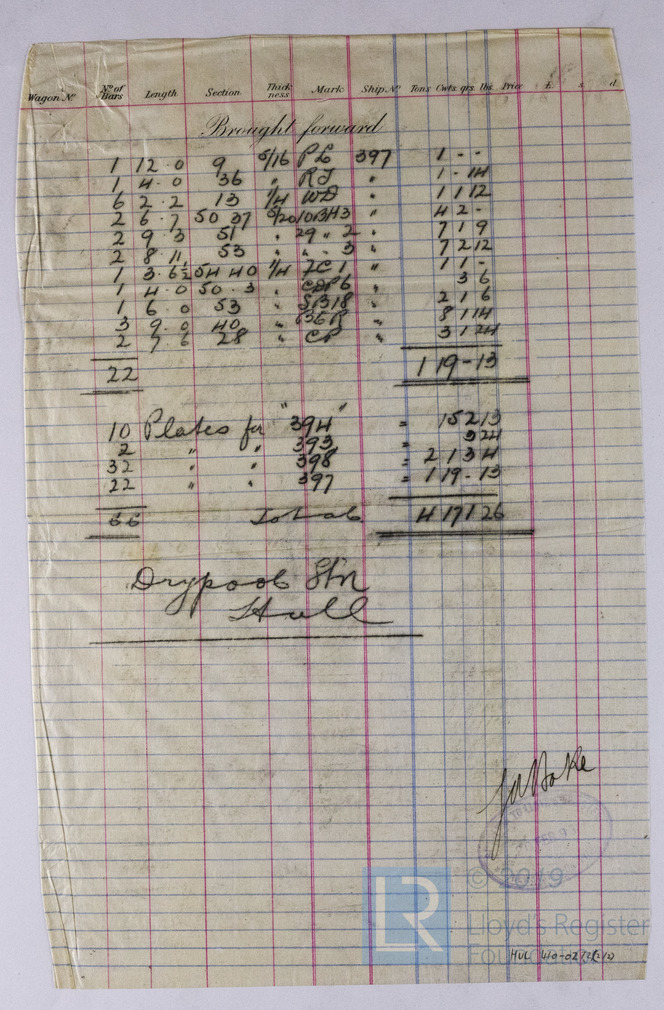 Wagon No No of Bars Length Section Thickness Mark Ship No Tons Cwts. qrs. lbs. Price £ s d
Brought forward
1 12.0 9 5/16 PL 397 1 - -
1 4.0 36 " RJ " 1 - 14
6 2.2 13 1/4 WD " 1 1 12
2 6.7 50 37 5/20 10BH3 " 4 2 -
2 9 3 51 " 29 " 2 " 7 1 9
2 8 11 53 " " " 3 " 7 2 12
1 3.6½ 54 40 1/4 1 " 1 1 -
1 4.0 50.3 " 3 6
1 6.0 53 " SB18 " 2 1 6
3 9.0 40 " B6R " 8 1 14
2 7 6 28 " CP " 3 1 24
22 1 19 - 13
" "
10 Plates for 394 = 15 2 13
2 " " 393 = 3 24
32 " " 398 = 2 1 3 4
22 " " 397 = 1 19 - 13
66 Total 4 17 1 26
Drypool Stn
Hull
© 2019
LR
Lloyd's Register
Foundation